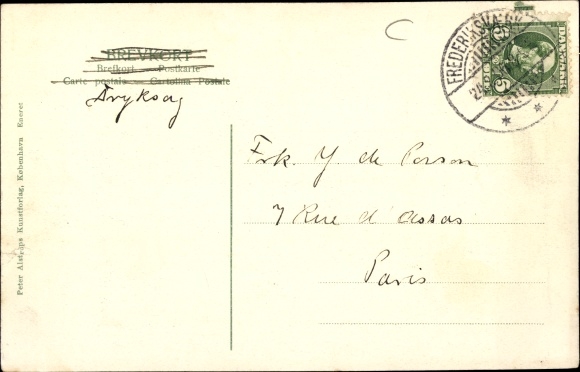 BREVKORT
Brefkort Postkarte
Carte postale Cartolina Postale
Tryksag
Frk. Y. de Person
7 Rue d'Assas
Paris
Peter Alstrups Kunstforlag, København Eneret
FREDERIKSVÆRK
DANMARK
5
5